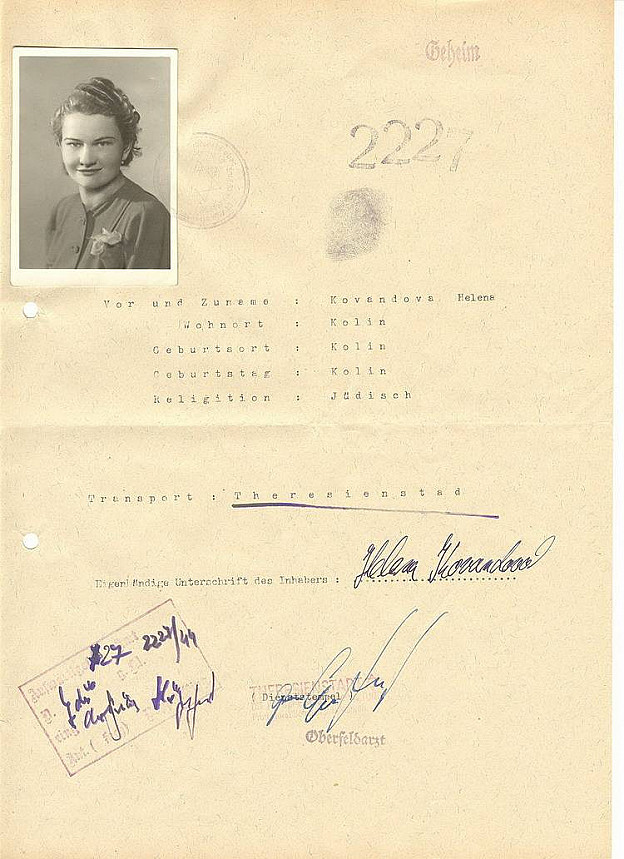 Geheim
2227
Vor und Zuname : Kovandova Helena
Wohnort : Kolin
Geburtsort : Kolin
Geburtstag : Kolin
Religition : Jüdisch
Transport : Theresienstad
Eigenhändige Unterschrift des Inhabers :
Helena Kovandova
27 2227/44
THERESIENSTADT
( Dienststempel )
Oberfeldarzt